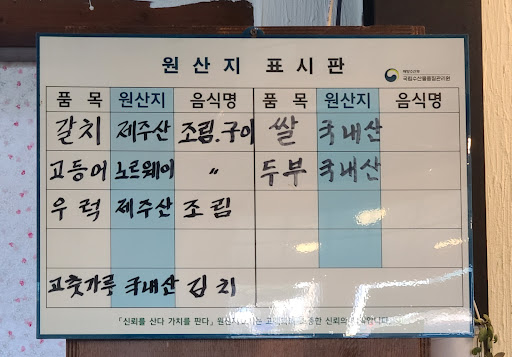 원산지 표시판
해양수산부
국립수산물품질관리원
품 목 원산지 음식명 품 목 원산지 음식명
갈치 제주산 조림.구이 쌀 국내산
고등어 노르웨이 〃 두부 국내산
우럭 제주산 조림
고춧가루 국내산 김치
「신뢰를 산다 가치를 판다」 원산지 신뢰의